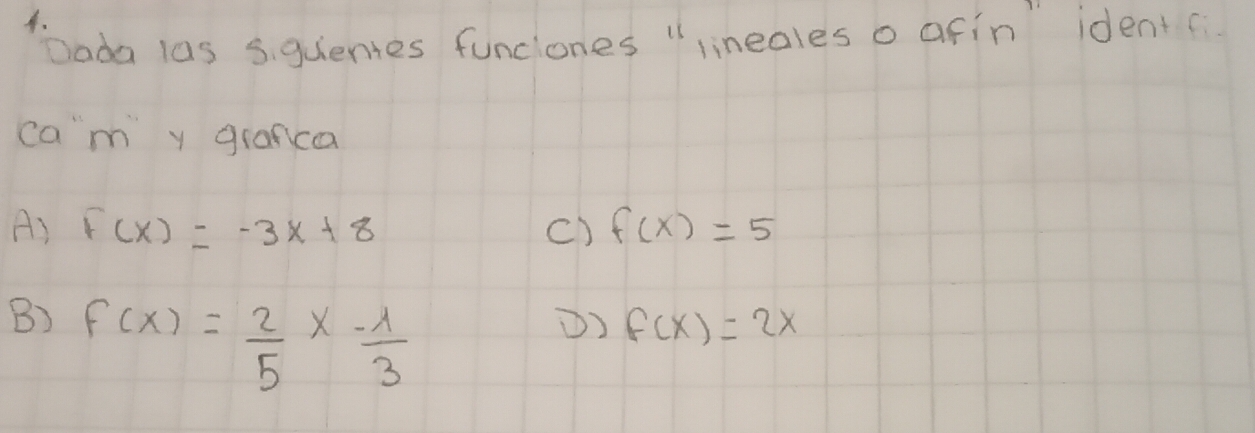 1.
Dada las siguientes funciones "lineales o afín" identifi-
ca "m" y grafica
A) f(x) = -3x + 8 C) f(x) = 5
B) f(x) = 2/5 x -1/3 D) f(x) = 2x